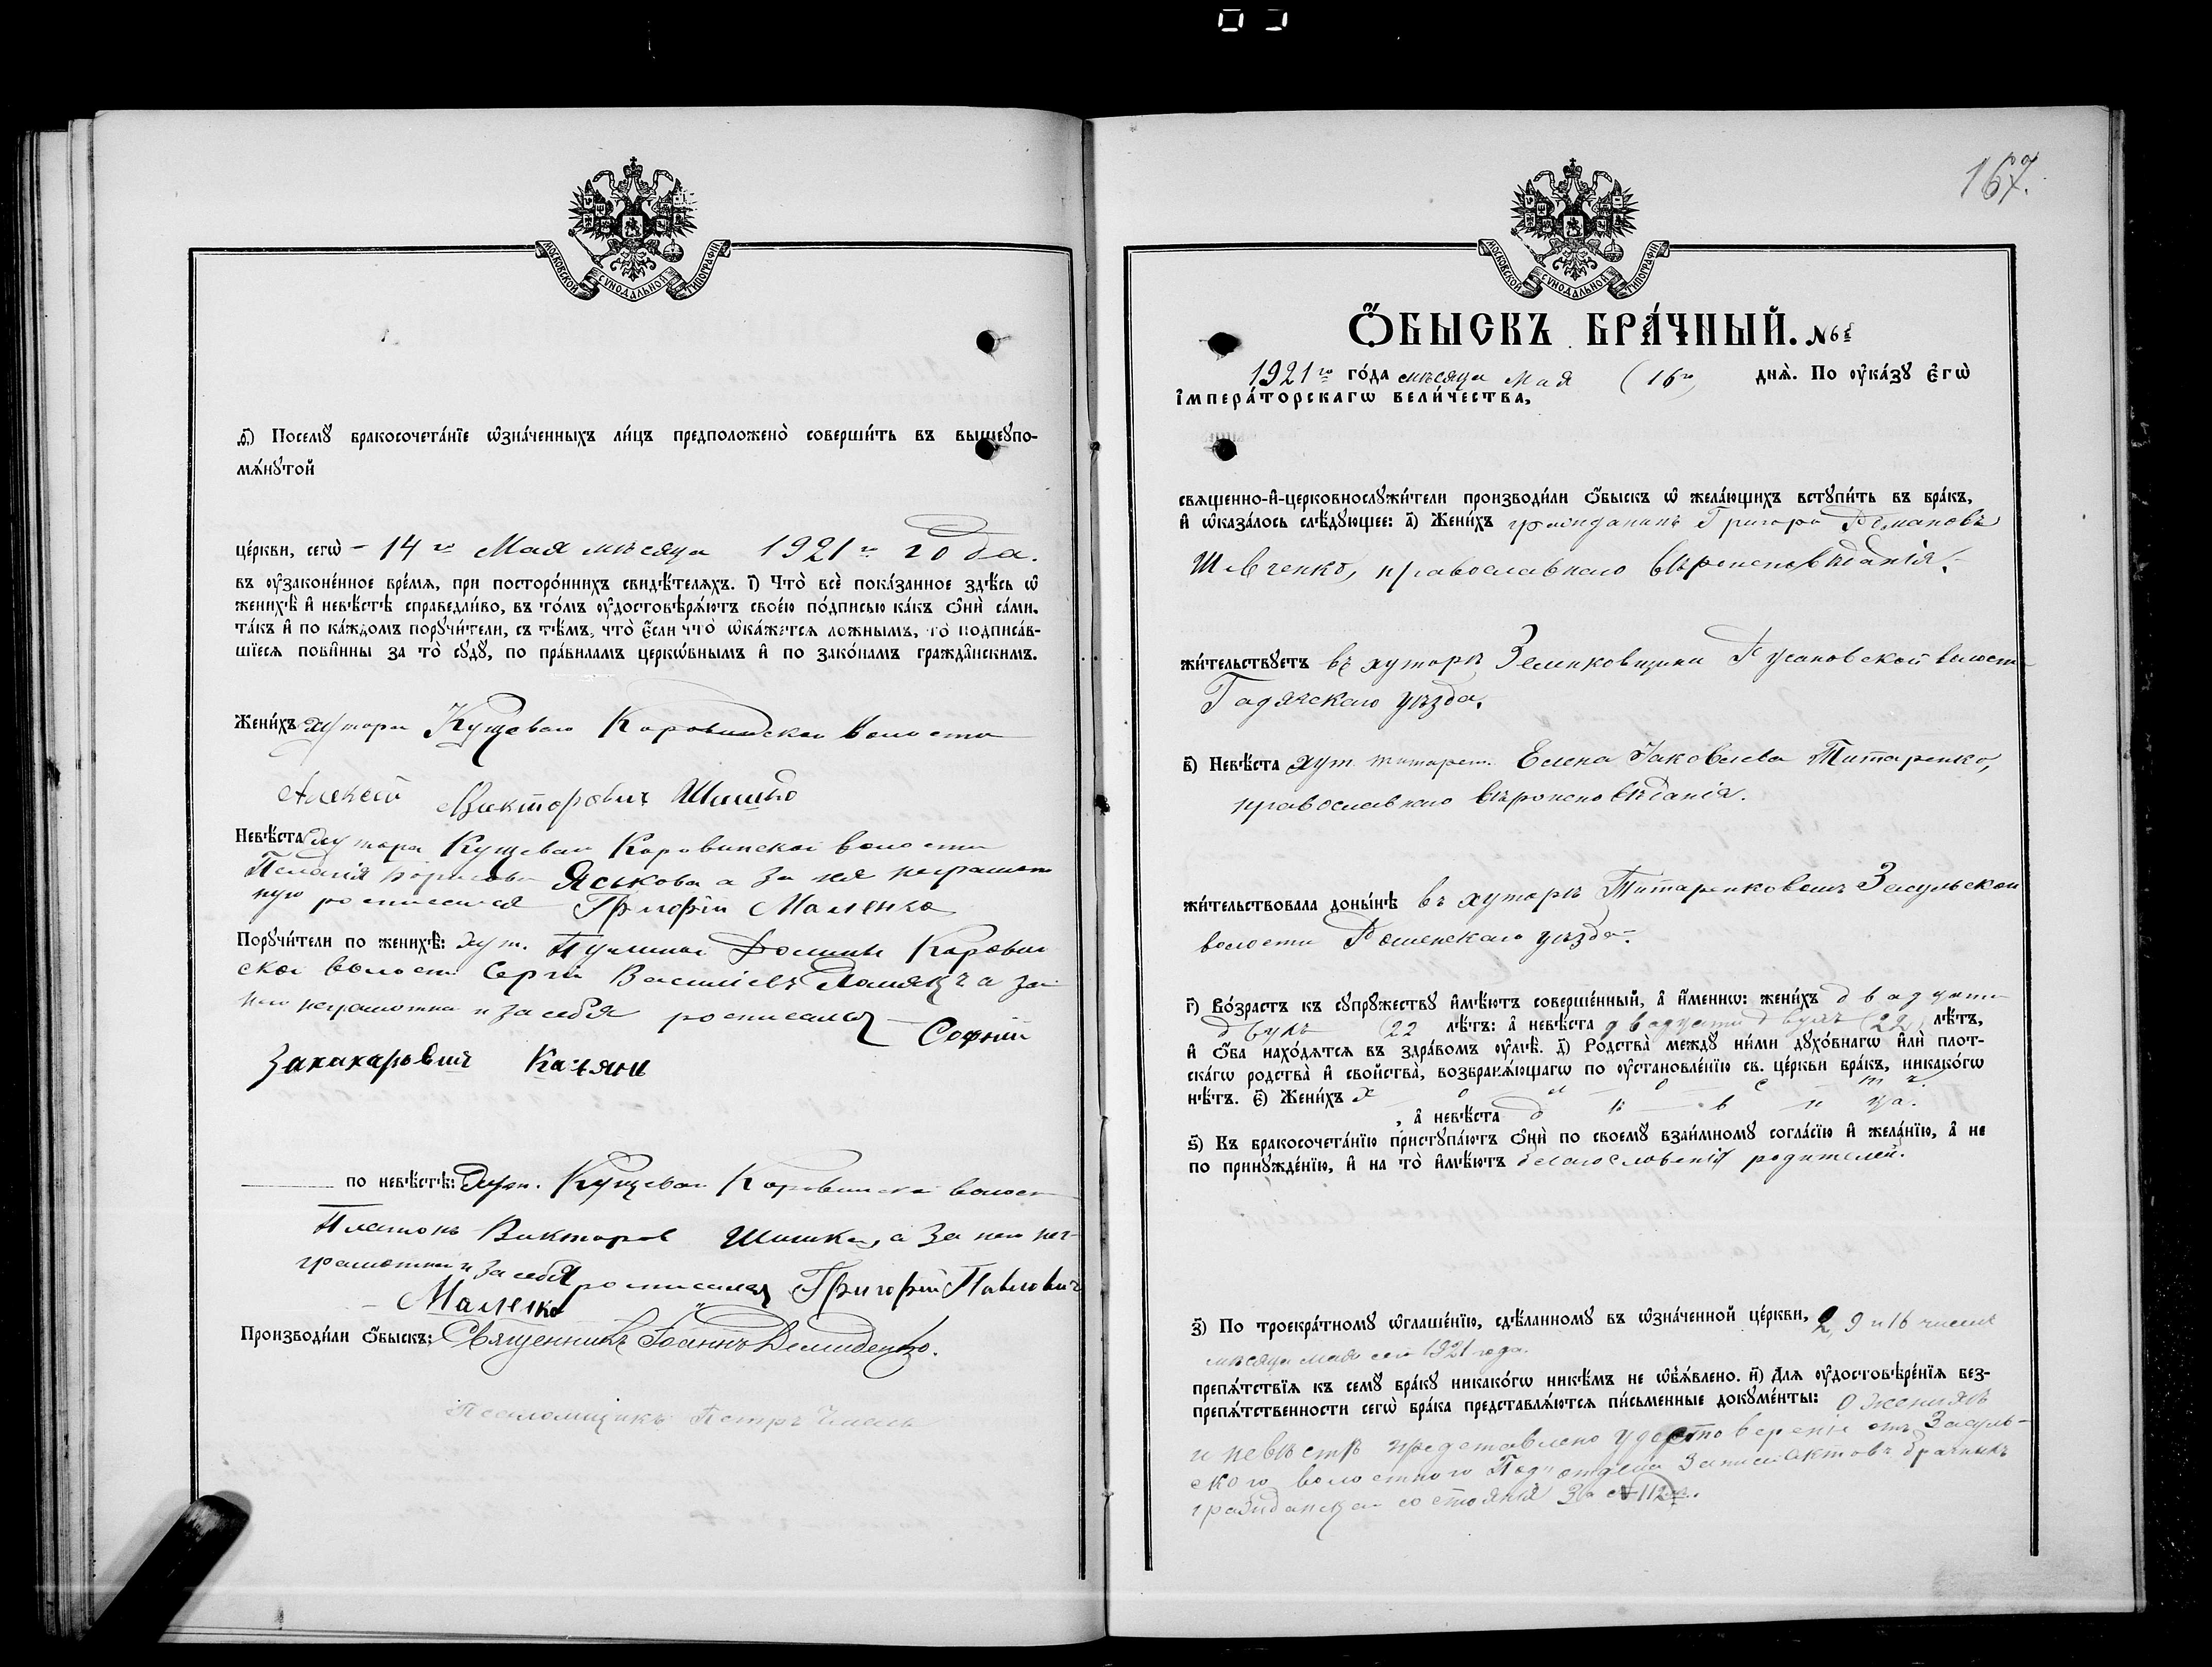 МОСКОВСКОЙ СѴНОДАЛЬНОЙ ТИПОГРАФІИ
ѳ҃) Посемꙋ бракосочета́нїе ѡ҆зна́ченныхъ ли́цъ предположено̀ соверши́ть въ вышеꙋпо-
мѧ́нꙋтой
це́ркви, сегѡ̀ - 14го Мая мѣсяца 1921го года.
въ ᲂу҆зако́ненное вре́мя, при посторо́ннихъ свидѣ́теляхъ. і҃) Что̀ всѐ пока́занное здѣ́сь ѡ҆
женихѣ̀ и҆ невѣ́стѣ справедли́во, въ то́мъ ᲂу҆достовѣрѧ́ютъ свое́ю по́дписью ка́къ ѻ҆нѝ са́ми.
та́къ и҆ по ка́ждомъ порꙋчи́тели, съ тѣ́мъ, что̀ є҆́сли что̀ ѡ҆ка́жется ложнымъ, то̀ подписа́в-
шїеся пови́нны за то̀ сꙋдꙋ̀, по пра́виламъ церко́внымъ и҆ по зако́намъ гражда́нскимъ.
Жени́хъ хутора Кущеваго Коровинской волости
Алексей Викторович Шишко
Невѣ́ста хутора Кущеваго Коровинской волости
Пелагія Борисова Яськова а за нея неграмот
ную росписался Григорій Маленко
Порꙋчи́тели по женихѣ̀: хут. Долины Коровин
ской волости Сергій Васильевъ а за
него неграмотна и за себя росписался Софній
Захахаровичь
по невѣ́стѣ: хут. Кущеваго Коровинской волост
Платонъ Викторов Шишко, а за него нег-
грамотна и за себя росписался Григорій Павлович
Маленко
Производи́ли ѻ҆́быскъ: Священникъ Іоаннъ Демиденко.
Псаломщикъ Петръ
167.
МОСКОВСКОЙ СѴНОДАЛЬНОЙ ТИПОГРАФІИ
Ѻ҆́БЫСКЪ БРА́ЧНЫЙ. №
1921го го́да мѣсяца Мая (16го) днѧ̀. По ᲂу҆ка́зꙋ є҆гѡ̀
і҆мпера́торскагѡ вели́чества,
священно-и҆-церковнослꙋжи́тели производи́ли ѻ҆́быскъ ѡ҆ жела́ющихъ встꙋпи́ть въ бра́къ,
и҆ ѡ҆каза́лось слѣ́дꙋющее: а҃) Жени́хъ гражданинъ Григорій Романовъ
Шевченко, православнаго вѣроисповѣданія.
жи́тельствꙋетъ въ хуторѣ Зеленковщини Русановской волости
Гадячскаго уѣзда.
в҃) Невѣ́ста хут. Титарен. Елена Іаковлева Титаренко,
православнаго вѣроисповѣданія.
жи́тельствовала доны́нѣ въ хуторѣ Титаренковомъ Засульской
волости Роменскаго уѣзда.
г҃) Во́зрастъ къ сꙋпрꙋ́жествꙋ и҆мѣ́ютъ соверше́нный, а҆ и҆́менно: жени́хъ двадцати
двухъ 22 лѣ́тъ: а҆ невѣ́ста двадцати двухъ (22) лѣ́тъ,
и҆ ѻ҆́ба нахо́дятся въ здра́вомъ ᲂу҆мѣ̀. д҃) Родства̀ междꙋ ни́ми дꙋхо́внагѡ и҆лѝ плот-
ска́гѡ родства̀ и҆ сво́йства, возбраня́ющагѡ по ᲂу҆становле́нїю св. це́ркви бра́къ, никако́гѡ
нѣ́тъ. є҃) Жени́хъ х о л о с т ъ
, а҆ невѣ́ста д ѣ в и ца.
ѕ҃) Къ бракосочета́нїю пристꙋпа́ютъ ѻ҆нѝ по своемꙋ взаи́мномꙋ согла́сїю и҆ жела́нїю, а҆ не
по принꙋжде́нїю, и҆ на то̀ и҆мѣ́ютъ благословенія родителей.
з҃) По троекра́тномꙋ ѡ҆глаше́нїю, сдѣ́ланномꙋ въ ѡ҆зна́ченной це́ркви, 2, 9 и 16 числѣ
мѣсяца мая сего 1921 года.
препѧ́тствїя къ семꙋ бра́кꙋ никако́гѡ никѣ́мъ не ѡ҆бъѧ́влено. и҃) Для ᲂу҆достовѣре́нїя без-
препѧ́тственности сегѡ̀ бра́ка представлѧ́ются пи́сьменные докꙋме́нты: О женихѣ
и невѣстѣ представлено удостовереніе отъ Засуль-
ского волостного Подъотдела Записи Актовъ брачнихъ
гражданскаго состоянія За № 112м.